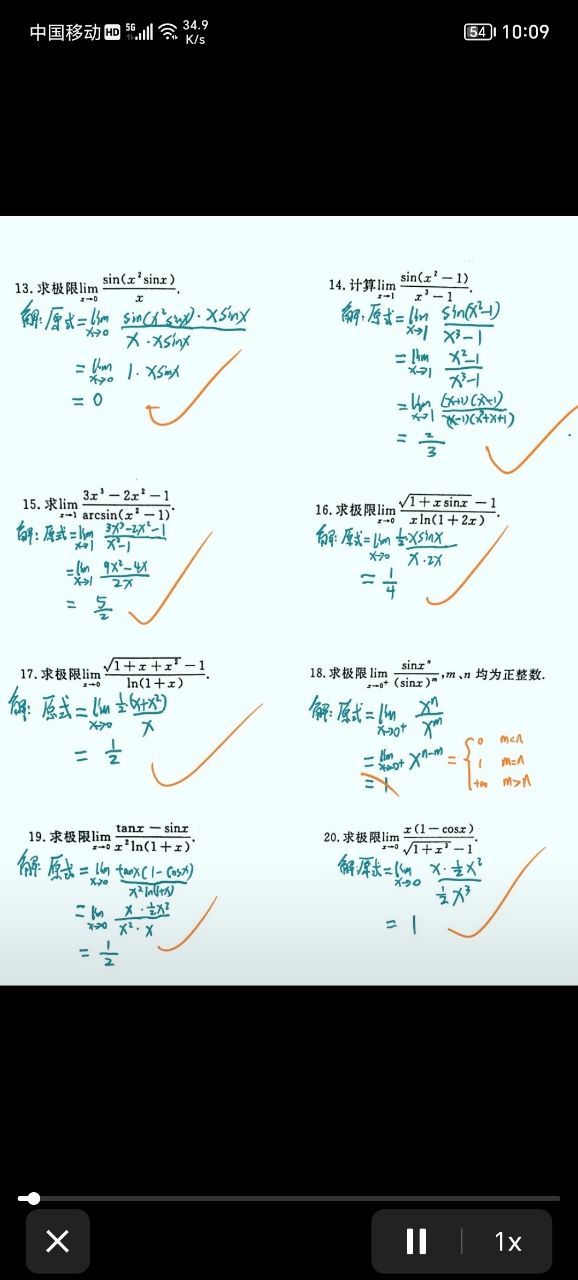 中国移动 HD 5G 34.9 K/s 54 10:09
13.求极限lim x→0 sin(x²sinx)/x.
解:原式=lim x→0 sin(x²sinx)·xsinx / x·xsinx
=lim x→0 1·xsinx
=0
14.计算lim x→1 sin(x²-1)/x³-1.
解:原式=lim x→1 sin(x²-1)/x³-1
=lim x→1 x²-1/x³-1
=lim x→1 (x+1)(x-1)/(x-1)(x²+x+1)
=2/3
15.求lim x→1 3x³-2x²-1/arcsin(x²-1).
解:原式=lim x→1 3x³-2x²-1/x²-1
=lim x→1 9x²-4x/2x
=5/2
16.求极限lim x→0 √(1+xsinx)-1/xln(1+2x).
解:原式=lim x→0 ½·xsinx/x·2x
=1/4
17.求极限lim x→0 √(1+x+x²)-1/ln(1+x).
解:原式=lim x→0 ½(x+x²)/x
=1/2
18.求极限lim x→0⁺ sinxⁿ/(sinx)ᵐ,m、n均为正整数.
解:原式=lim x→0⁺ xⁿ/xᵐ
=lim x→0⁺ xⁿ⁻ᵐ = { 0 m<n
1 m=n
+∞ m>n
=1
19.求极限lim x→0 tanx-sinx/x²ln(1+x).
解:原式=lim x→0 tanx(1-cosx)/x²ln(1+x)
=lim x→0 x·½x²/x²·x
=1/2
20.求极限lim x→0 x(1-cosx)/√(1+x³)-1.
解:原式=lim x→0 x·½x²/½x³
=1
1x